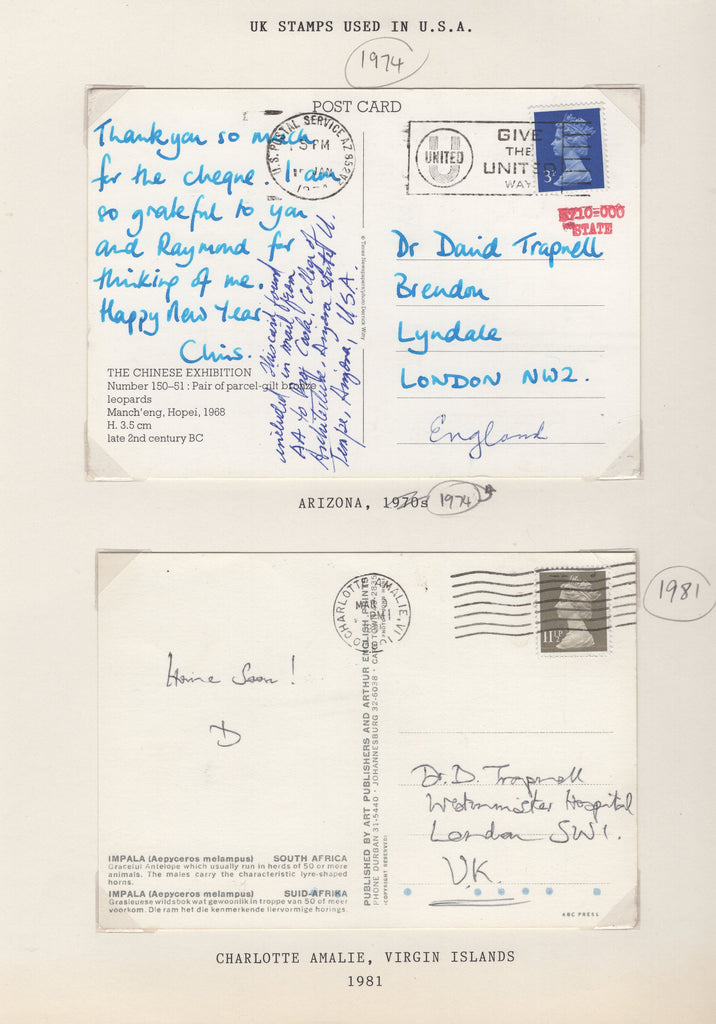 UK STAMPS USED IN U.S.A.
1974
POST CARD
Thank you so much
for the cheque. I am
so grateful to you
and Raymond for
thinking of me.
Happy New Year
Chris.
U.S. POSTAL SERVICE AZ 852
PM
JAN
U
UNITED
GIVE
THE
UNITED
WAY
3P
STATE
Dr David Trapnell
Brendon
Lyndale
LONDON NW2.
England
THE CHINESE EXHIBITION
Number 150–51: Pair of parcel-gilt bronze
leopards
Manch'eng, Hopei, 1968
H. 3.5 cm
late 2nd century BC
This card found
included in mail from
AA to Cash, College of
Architecture, Arizona State U.
Tempe, Arizona, USA
ARIZONA, 1970s 1974
1981
CHARLOTTE AMALIE, VI
MAR
PM
11½P
Home Soon!
D
PUBLISHED BY ART PUBLISHERS AND ARTHUR ENGLISH PRINTS
PHONE DURBAN 31-5440 · JOHANNESBURG 32-6038 · CAPE TOWN
(COPYRIGHT RESERVED)
Dr. D. Trapnell
Westminster Hospital
London SW1.
U.K.
IMPALA (Aepyceros melampus) SOUTH AFRICA
Graceful Antelope which usually run in herds of 50 or more
animals. The males carry the characteristic lyre-shaped
horns.
IMPALA (Aepyceros melampus) SUID-AFRIKA
Grasieuse wildsbok wat gewoonlik in troppe van 50 of meer
voorkom. Die ram het die kenmerkende liervormige horings.
ABC PRESS
CHARLOTTE AMALIE, VIRGIN ISLANDS
1981